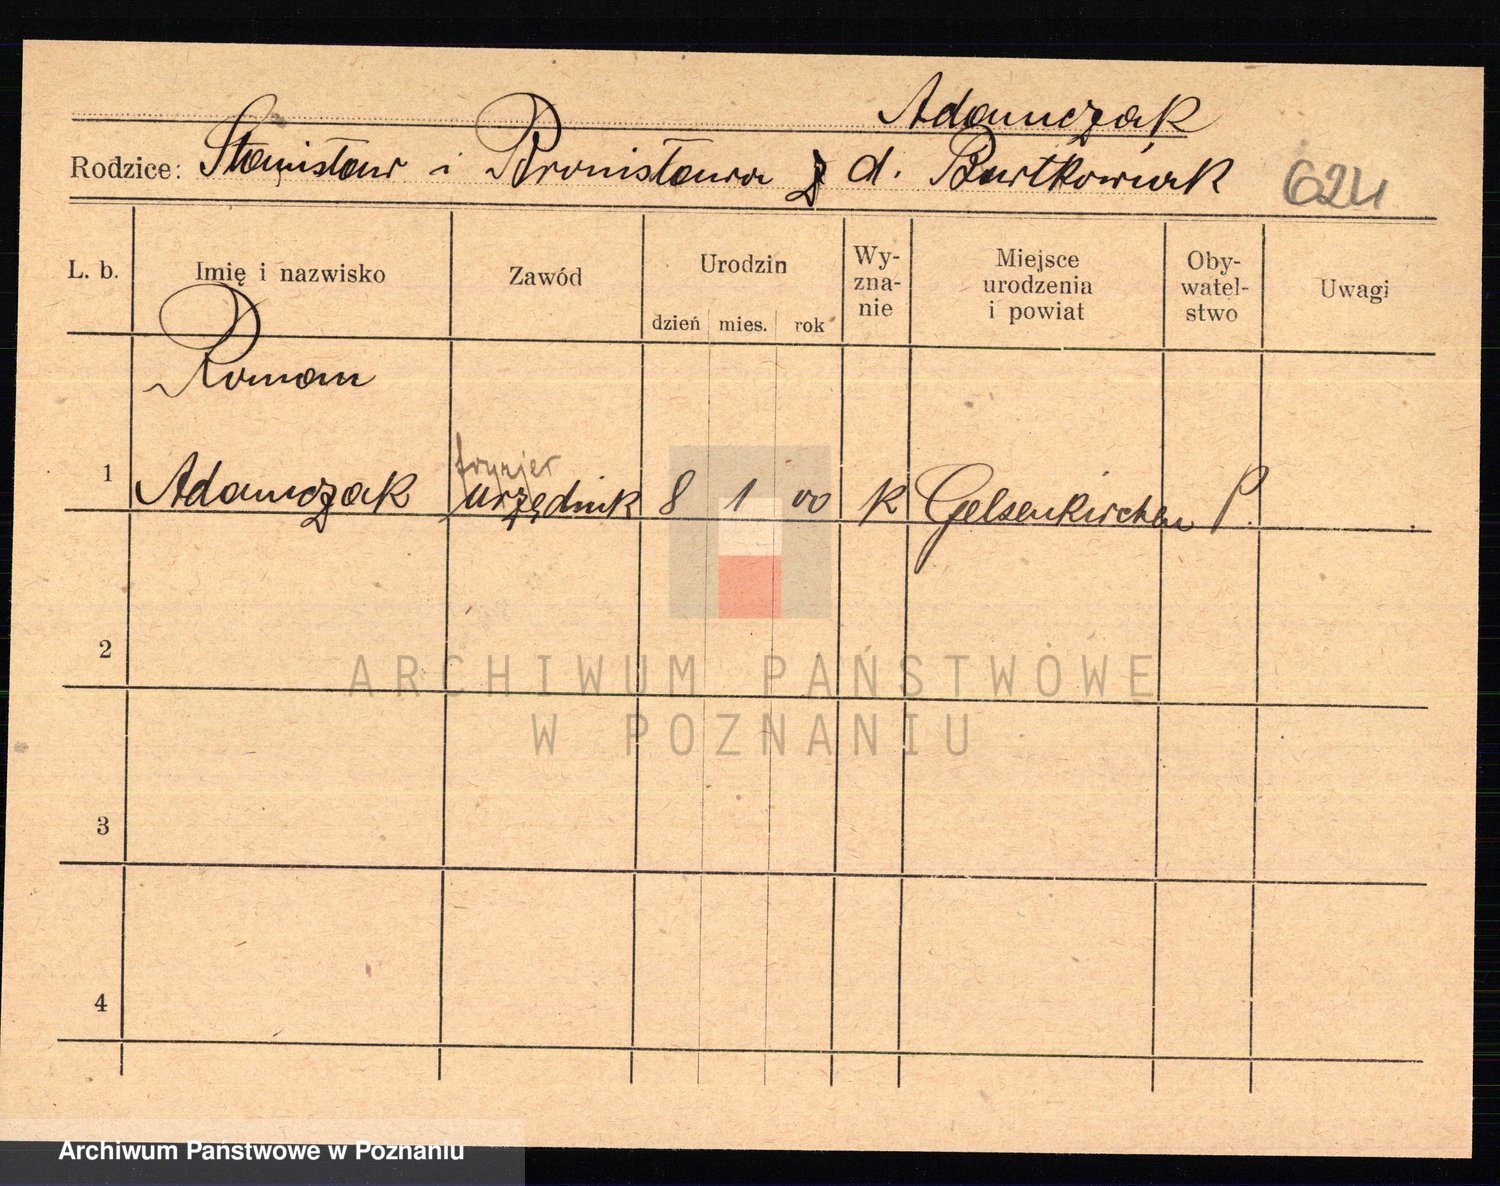 Adamczak
Rodzice: Stanisław i Bronisława z d. Bartkowiak 624
L. b. Imię i nazwisko Zawód Urodzin dzień mies. rok Wy-zna-nie Miejsce urodzenia i powiat Oby-watel-stwo Uwagi
Roman
fryzjer
1 Adamczak urzędnik 8 1 00 k Gelsenkirchen P.
2
ARCHIWUM PAŃSTWOWE
W POZNANIU
3
4
Archiwum Państwowe w Poznaniu